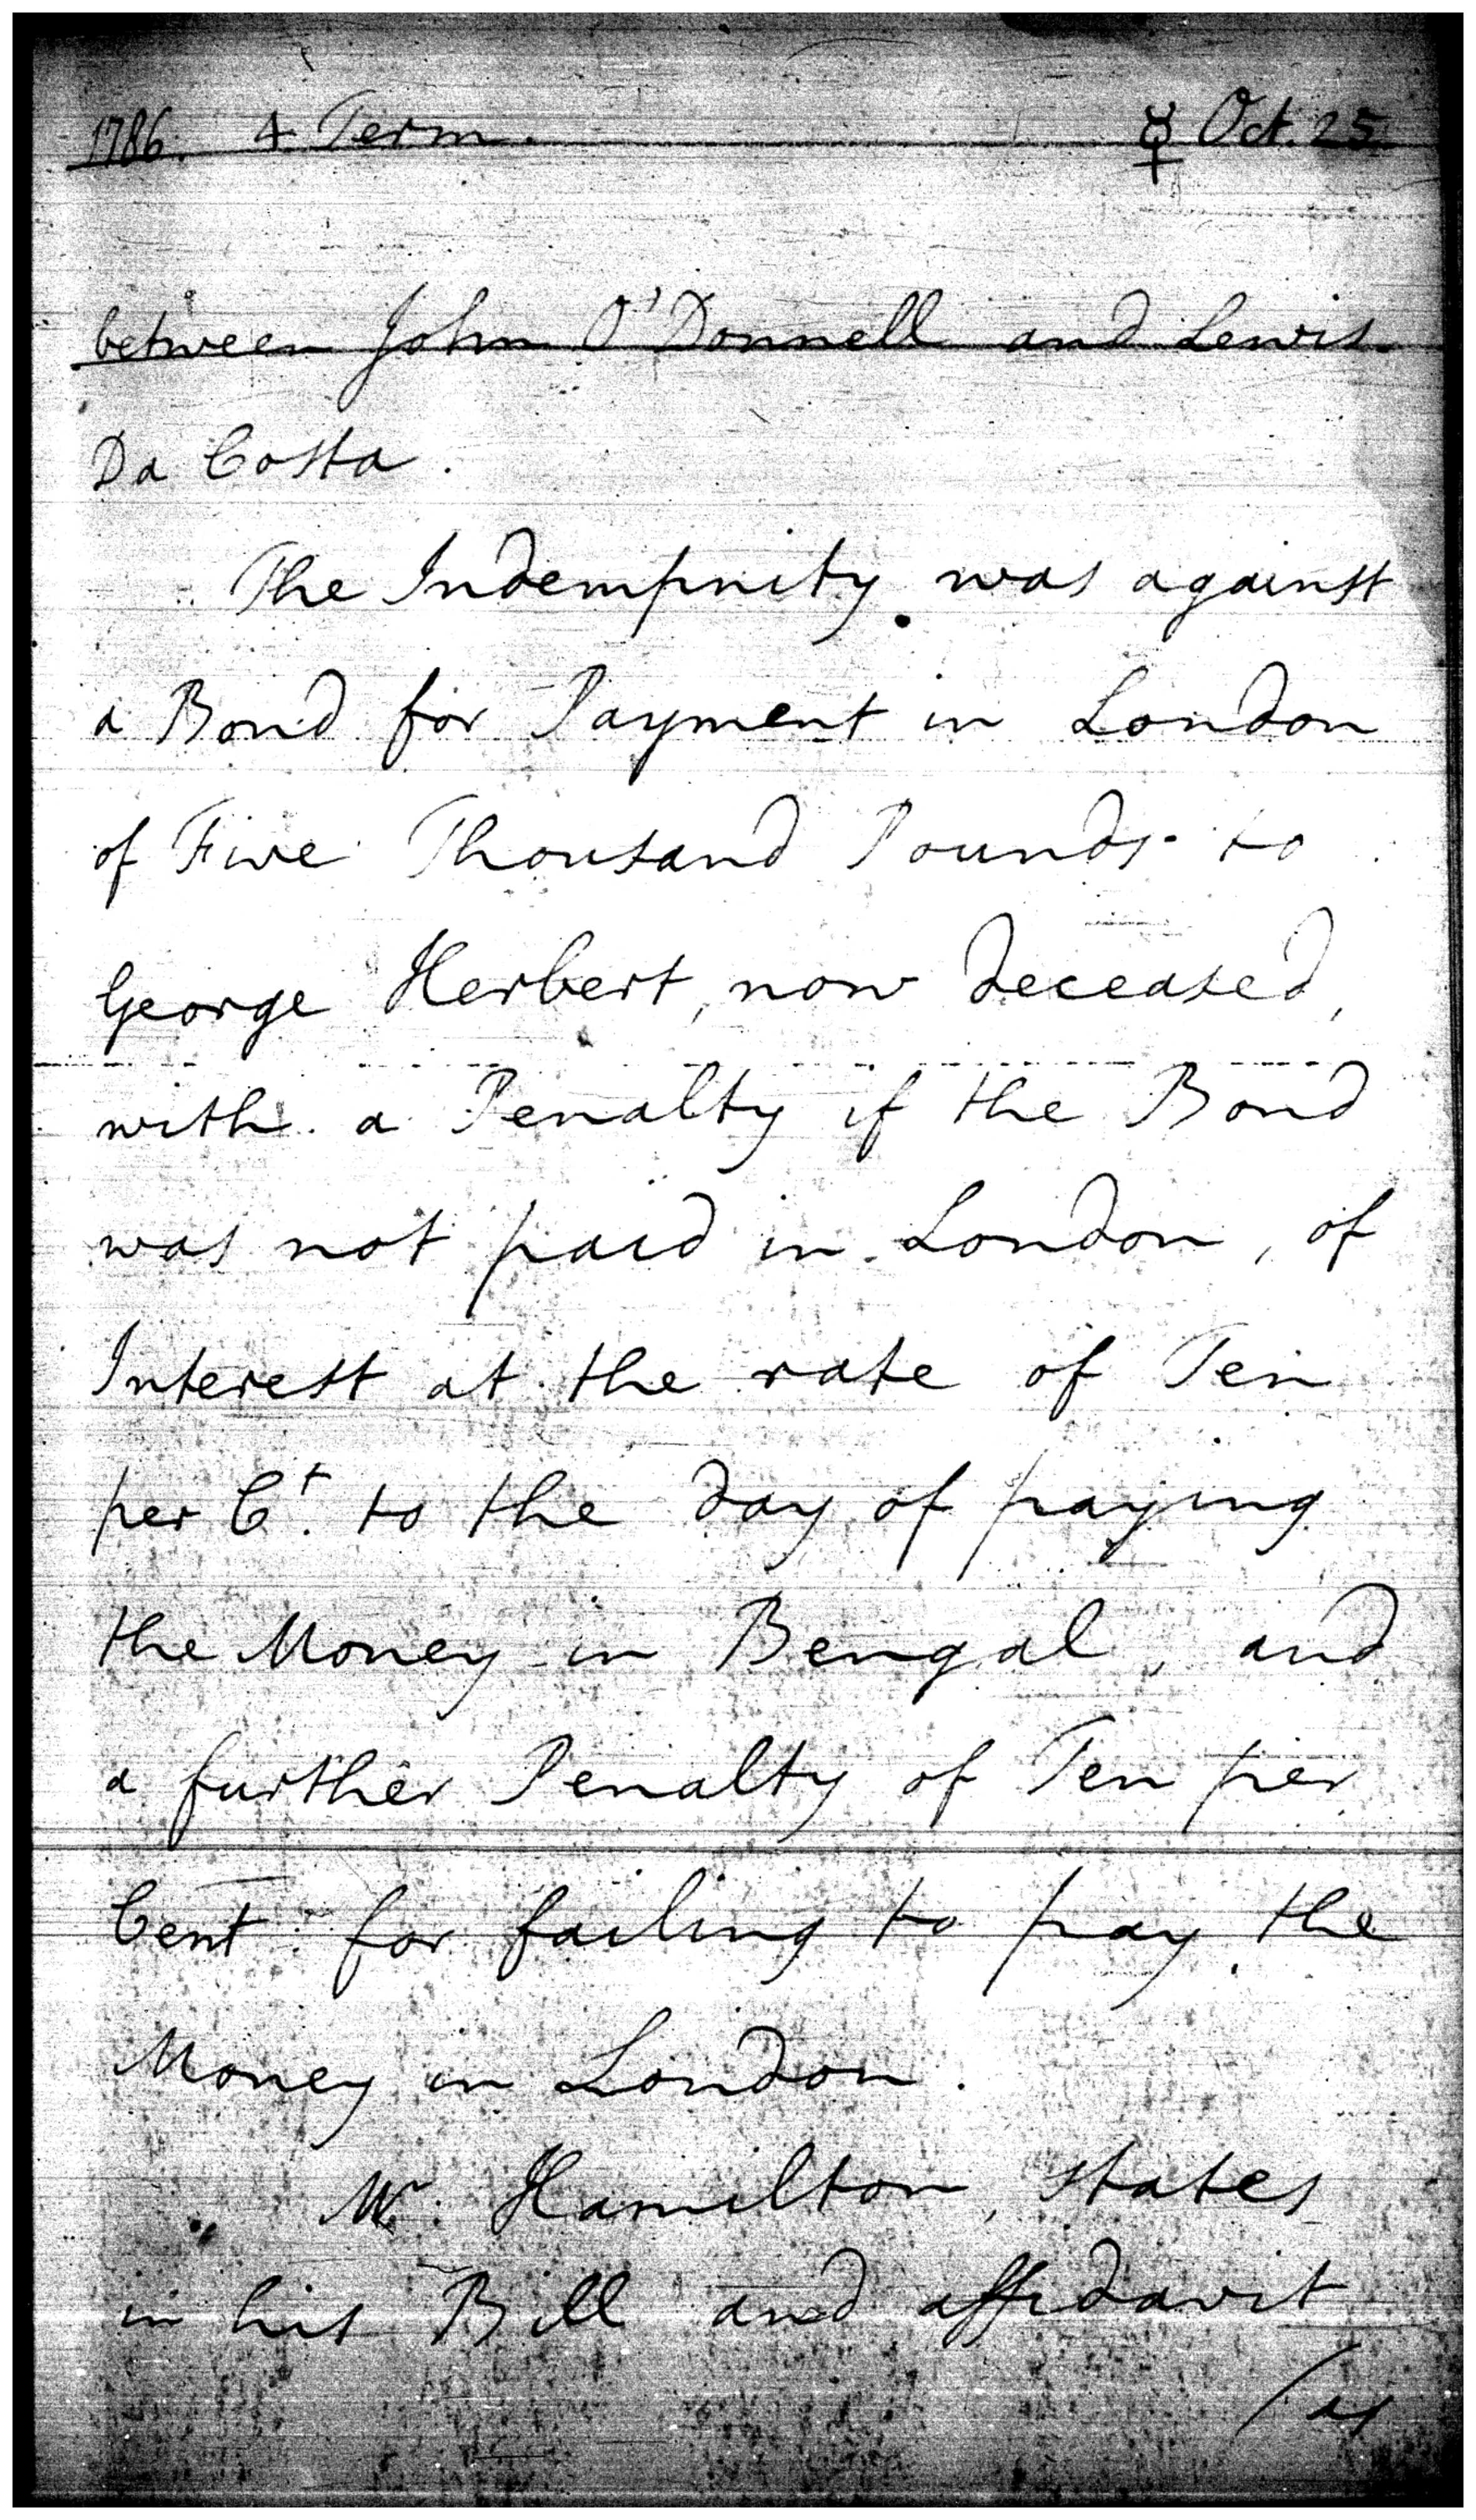 1786. 4 Term. ☿ Oct. 25
between John O'Donnell and Lewis
Da Costa.
The Indempnity was against
a Bond for Payment in London
of Five Thousand Pounds to
George Herbert, now deceased,
with a Penalty if the Bond
was not paid in London, of
Interest at the rate of Ten
per Ct. to the day of paying
the Money in Bengal, and
a further Penalty of Ten per
Cent for failing to pay the
Money in London.
Mr. Hamilton, states
in his Bill and affidavit
/as